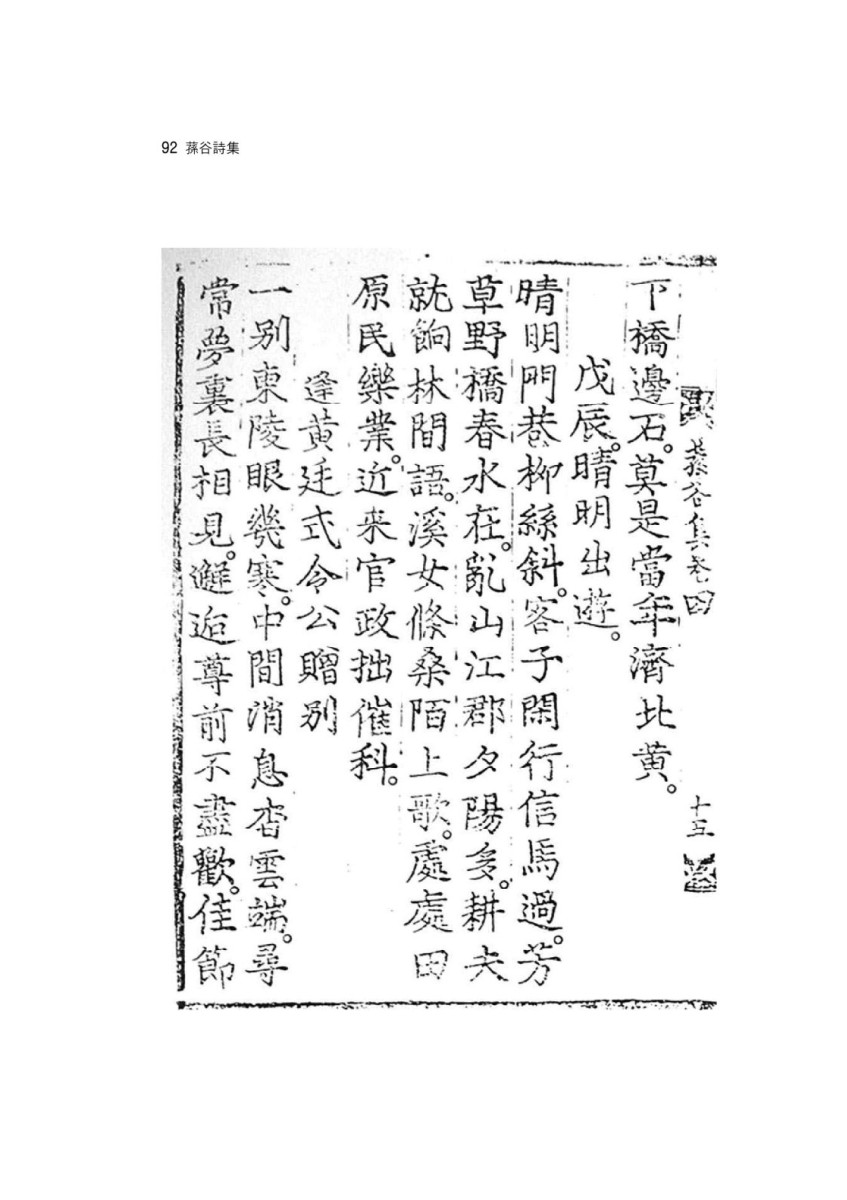 92 蓀谷詩集
蓀谷集卷四 十五
下橋邊石。莫是當年濟北黄。
戊辰。晴明出遊。
晴明門巷柳絲斜。客子閑行信馬過。芳
草野橋春水在。亂山江郡夕陽多。耕夫
就餉林間語。溪女條桑陌上歌。處處田
原民樂業。近来官政拙催科。
逢黄廷式令公贈别
一别東陵眼幾寒。中間消息杳雲端。尋
常夢裏長相見。邂逅尊前不盡歡。佳節